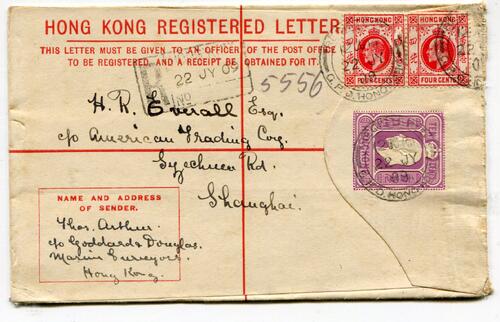 HONG KONG REGISTERED LETTER
THIS LETTER MUST BE GIVEN TO AN OFFICER OF THE POST OFFICE
TO BE REGISTERED, AND A RECEIPT BE OBTAINED FOR IT.
HONGKONG
FOUR CENTS
HONGKONG
FOUR CENTS
22 JY 09
No
5556
G.P.O. HONG
H. R. Everall Esq.
c/o American Trading Coy.
Szechuen Rd.
Shanghai.
HONGKONG
22 JY
09
G.P.O. HONG
NAME AND ADDRESS
OF SENDER.
Thos. Arthur
c/o Goddard & Douglas.
Marine Surveyors.
Hong Kong.